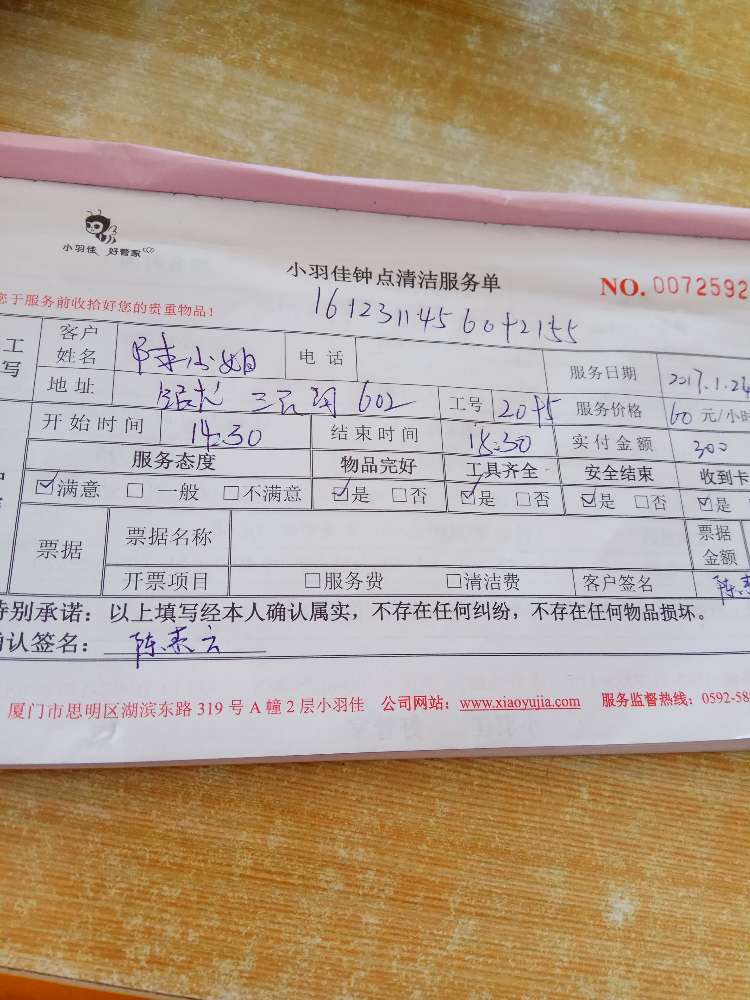 小羽佳 好管家
小羽佳钟点清洁服务单
NO. 0072592
您于服务前收拾好您的贵重物品！
1612311456042155
工
写
客户姓名 陈小姐 电话 服务日期 2017.1.24
地址 602 工号 2045 服务价格 60 元/小时
开始时间 14:30 结束时间 实付金额 300
服务态度 物品完好 工具齐全 安全结束 收到卡
☑满意 □一般 □不满意 ☑是 □否 ☑是 □否 ☑是 □否 ☑是
票据 票据名称 票据金额
开票项目 □服务费 □清洁费 客户签名
特别承诺：以上填写经本人确认属实，不存在任何纠纷，不存在任何物品损坏。
确认签名：
厦门市思明区湖滨东路 319 号 A 幢 2 层小羽佳 公司网站：www.xiaoyujia.com 服务监督热线：0592-58